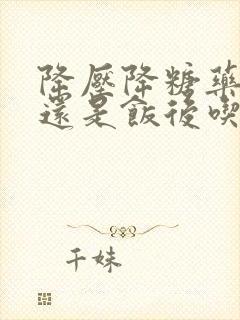 降壓降糖藥
還是飯後喫
千妹